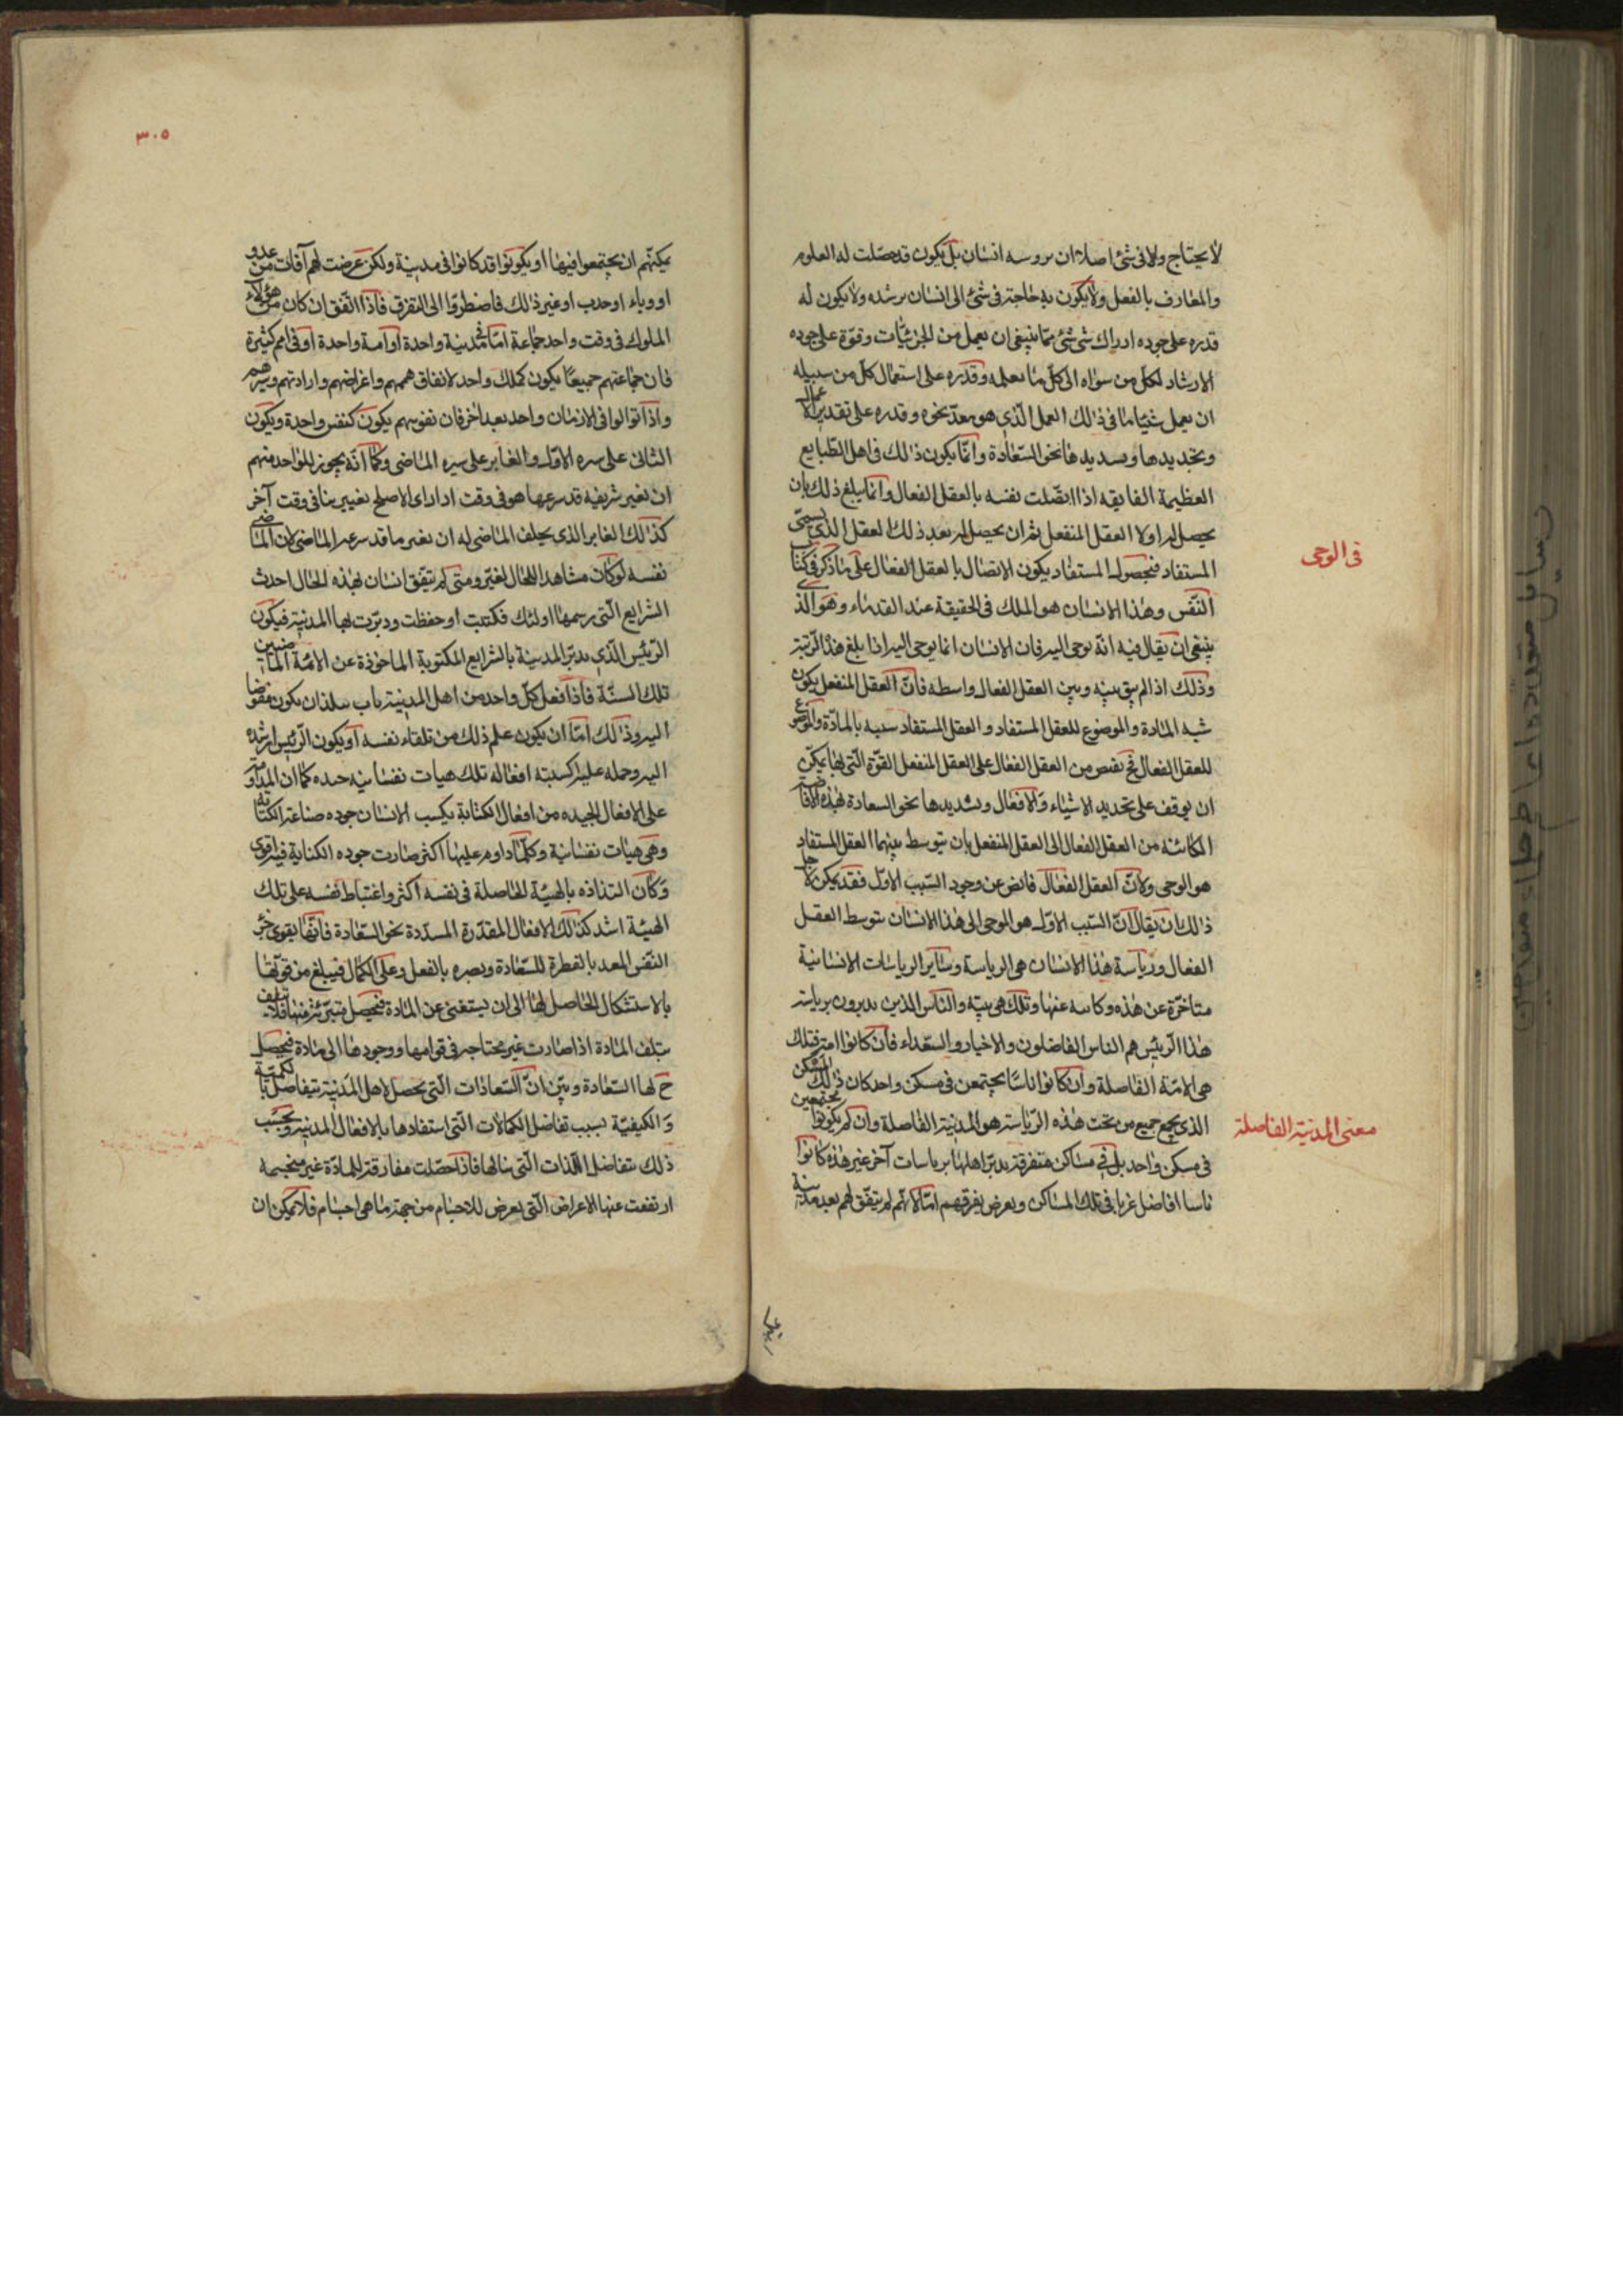 لا يحتاج ولا في شئ اصلا ان يروسه انسان بل يكون قد حصلت له العلوم
والمعارف بالفعل ولا يكون به حاجة في شئ الى انسان يرشده ولا يكون له
قدره على جوده ادراك شئ شئ مما ينبغي ان يعمل من الجزئيات وقوة على جوده
الارشاد لكل من سواه الى كل ما يعلمه وقدره على استعمال كل من سبيله
ان يعمل شيئا ما في ذلك العمل الذي هو معد نحوه وقدره على تقدير الاعمال
وتحديدها وتسديدها نحو السعادة وانما يكون ذلك في اهل الطبايع
العظيمة الفايقه اذا اتصلت نفسه بالعقل الفعال وانما يبلغ ذلك بان
يحصل له اولا العقل المنفعل ثم ان يحصل له بعد ذلك العقل الذي يسمى
المستفاد فبحصول المستفاد يكون الاتصال بالعقل الفعال على ما ذكر في كتاب
النفس وهذا الانسان هو الملك في الحقيقة عند القدماء وهو الذي
ينبغي ان يقال فيه انه يوحى اليه فان الانسان انما يوحى اليه اذا بلغ هذه الرتبة
وذلك اذا لم يبق بينه وبين العقل الفعال واسطه فان العقل المنفعل يكون
شبه المادة والموضوع للعقل المستفاد والعقل المستفاد شبيه بالمادة والموضوع
للعقل الفعال فح يفيض من العقل الفعال على العقل المنفعل القوة التي بها يمكن
ان يوقف على تحديد الاشياء والافعال وتسديدها نحو السعادة فهذه الافاضة
الكائنة من العقل الفعال الى العقل المنفعل بان يتوسط بينهما العقل المستفاد
هو الوحي ولان العقل الفعال فائض عن وجود السبب الاول فقد يمكن لاجل
ذلك ان يقال ان السبب الاول هو الموحي الى هذا الانسان بتوسط العقل
الفعال ورياسة هذا الانسان هي الرياسة وساير الرياسات الانسانية
متاخرة عن هذه وكاينه عنها وتلك هي بينه والناس الذين يدبرون برياسة
هذا الرئيس هم الناس الفاضلون والاخيار والسعداء فان كانوا امة فتلك
هي الامة الفاضلة وان كانوا اناسا يجتمعن في مسكن واحد كان ذلك المسكن
الذي يجمع جميع من تحت هذه الرياسة هو المدينة الفاضلة وان لم يكونوا مجتمعين
في مسكن واحد بل في مساكن متفرقة يدبر اهلها برياسات آخر غير هذه كانوا
ناسا افاضل غربا في تلك المساكن ويعرض تفرقهم اما لانهم لم يتفق لهم بعد مدينة
في الوحي
معنى المدينة الفاضلة
٣٠٥
يمكنهم ان يجتمعوا فيها او يكونوا قد كانوا في مدينة ولكن عرضت لهم آفات من عدو
او وباء او جدب او غير ذلك فاضطروا الى التفرق فاذا اتفق ان كان من هؤلاء
الملوك في وقت واحد جماعة اما في مدينة واحدة او امة واحدة او في امم كثيرة
فان جماعتهم جميعا يكون كملك واحد لاتفاق هممهم واغراضهم وارادتهم وسيرهم
واذا توالوا في الازمان واحد بعد اخر فان نفوسهم يكون كنفس واحدة ويكون
الثاني على سيره الاول والغابر على سيره الماضي وكما انه يجوز للواحد منهم
ان يغير شريعه قد شرعها هو في وقت اذا راى الاصلح تغييرها في وقت آخر
كذلك الغابر الذي يخلف الماضي له ان يغير ما قد شرعه الماضي لان الماضي
نفسه لو كان مشاهد اللحال لغير ومتى لم يتفق انسان بهذه الحال احدث
الشرايع التي رسمها اولئك فكتبت او حفظت ودبرت بها المدينة فيكون
الرئيس الذي يدبر المدينة بالشرايع المكتوبة الماخوذة عن الائمة الماضين
تلك السنة فاذا فعل كل واحد من اهل المدينة يكون مفوضا
اليه وذلك اما ان يكون علم ذلك من تلقاء نفسه او يكون الرئيس ارشده
اليه وحمله عليه اكسبته افعاله تلك هيات نفسانيه جيده كما ان المداومة
على الافعال الجيده من افعال الكتابة يكسب الانسان جوده صناعة الكتابة
وهي هيات نفسانية وكلما داوم عليها اكثر صارت جوده الكتابة فيه اقوى
وكان التذاذه بالهيئة الحاصلة في نفسه اكثر واغتباط نفسه على تلك
الهيئة اشد كذلك الافعال المقدرة المسددة نحو السعادة فانها يقوى جزء
النفس المعد بالفطرة للسعادة ويصيره بالفعل وعلى الكمال فيبلغ من قوتها
بالاستكمال الحاصل لها الى ان يستغنى عن المادة فيحصل متبرئة منها فلا يتلف
بتلف المادة اذا صارت غير محتاجة في قوامها ووجودها الى مادة فيحصل
ح لها السعادة وبين ان السعادات التي تحصل لاهل المدينة يتفاضل بالكمية
والكيفية بسبب تفاضل الكمالات التي استفادها بالافعال المدنية وبحسب
ذلك يتفاضل اللذات التي ينالها فاذا حصلت مفارقة للمادة غير متجسمه
ارتفعت عنها الاعراض التي يعرض للاجسام من جهة ما هي اجسام فلا يمكن ان